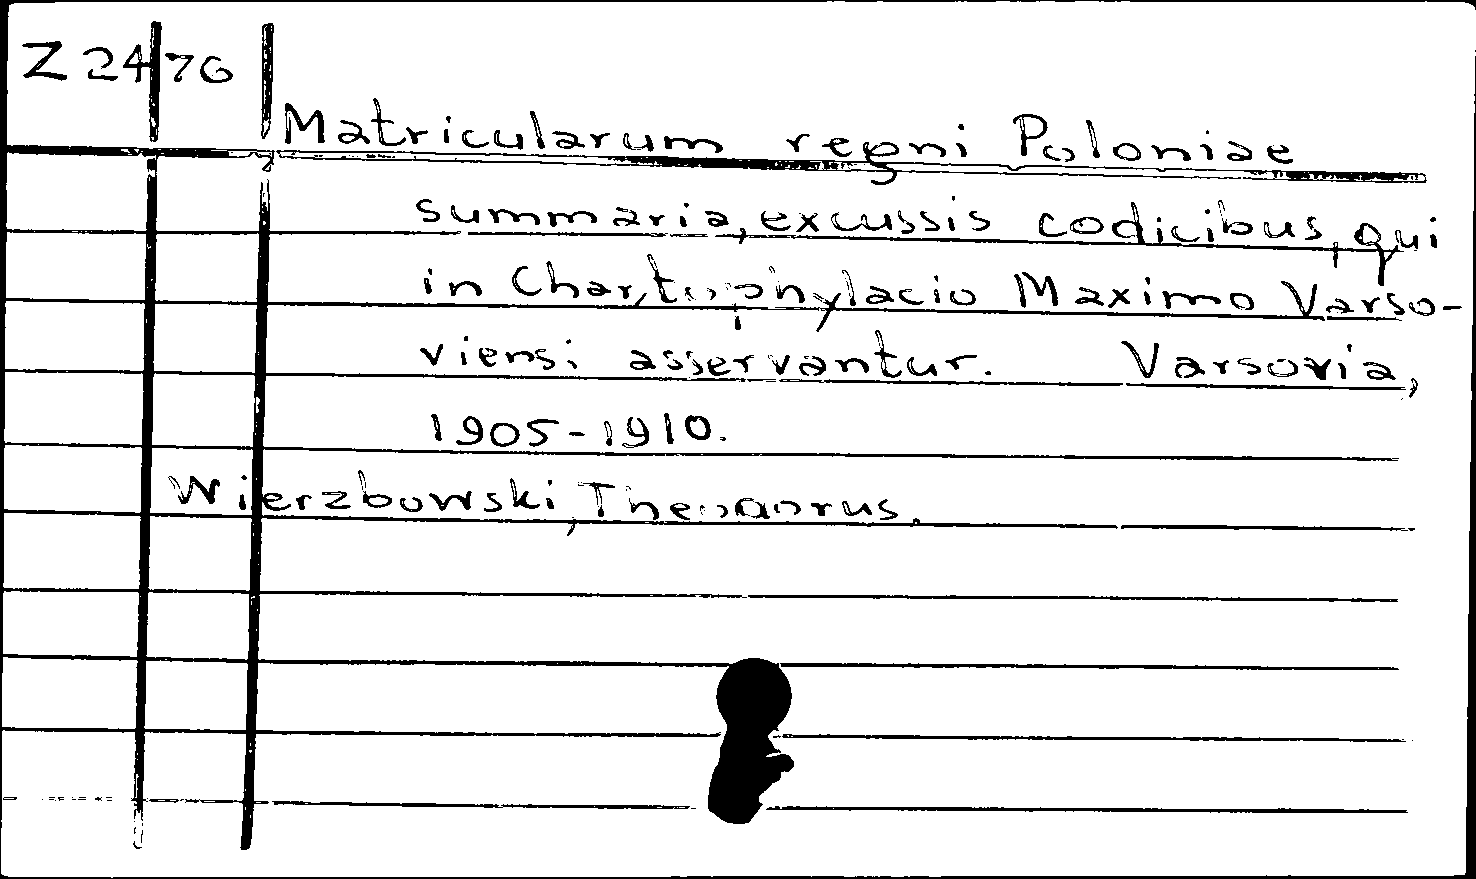 Z 2476
Matricularum regni Poloniae
summaria, excussis codicibus, qui
in Chartophylacio Maximo Varso-
viensi asservantur. Varsovia,
1905-1910.
Wierzbowski,